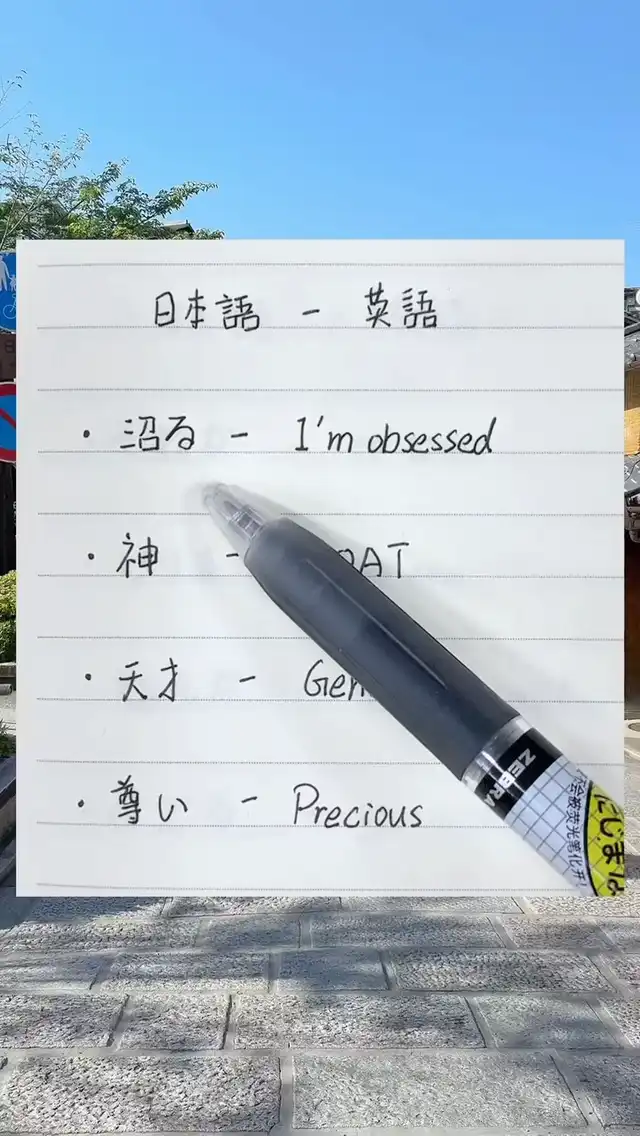 日本語 - 英語
・沼る - I'm obsessed
・神 -
・天才 -
・尊い - Precious
ZEBRA